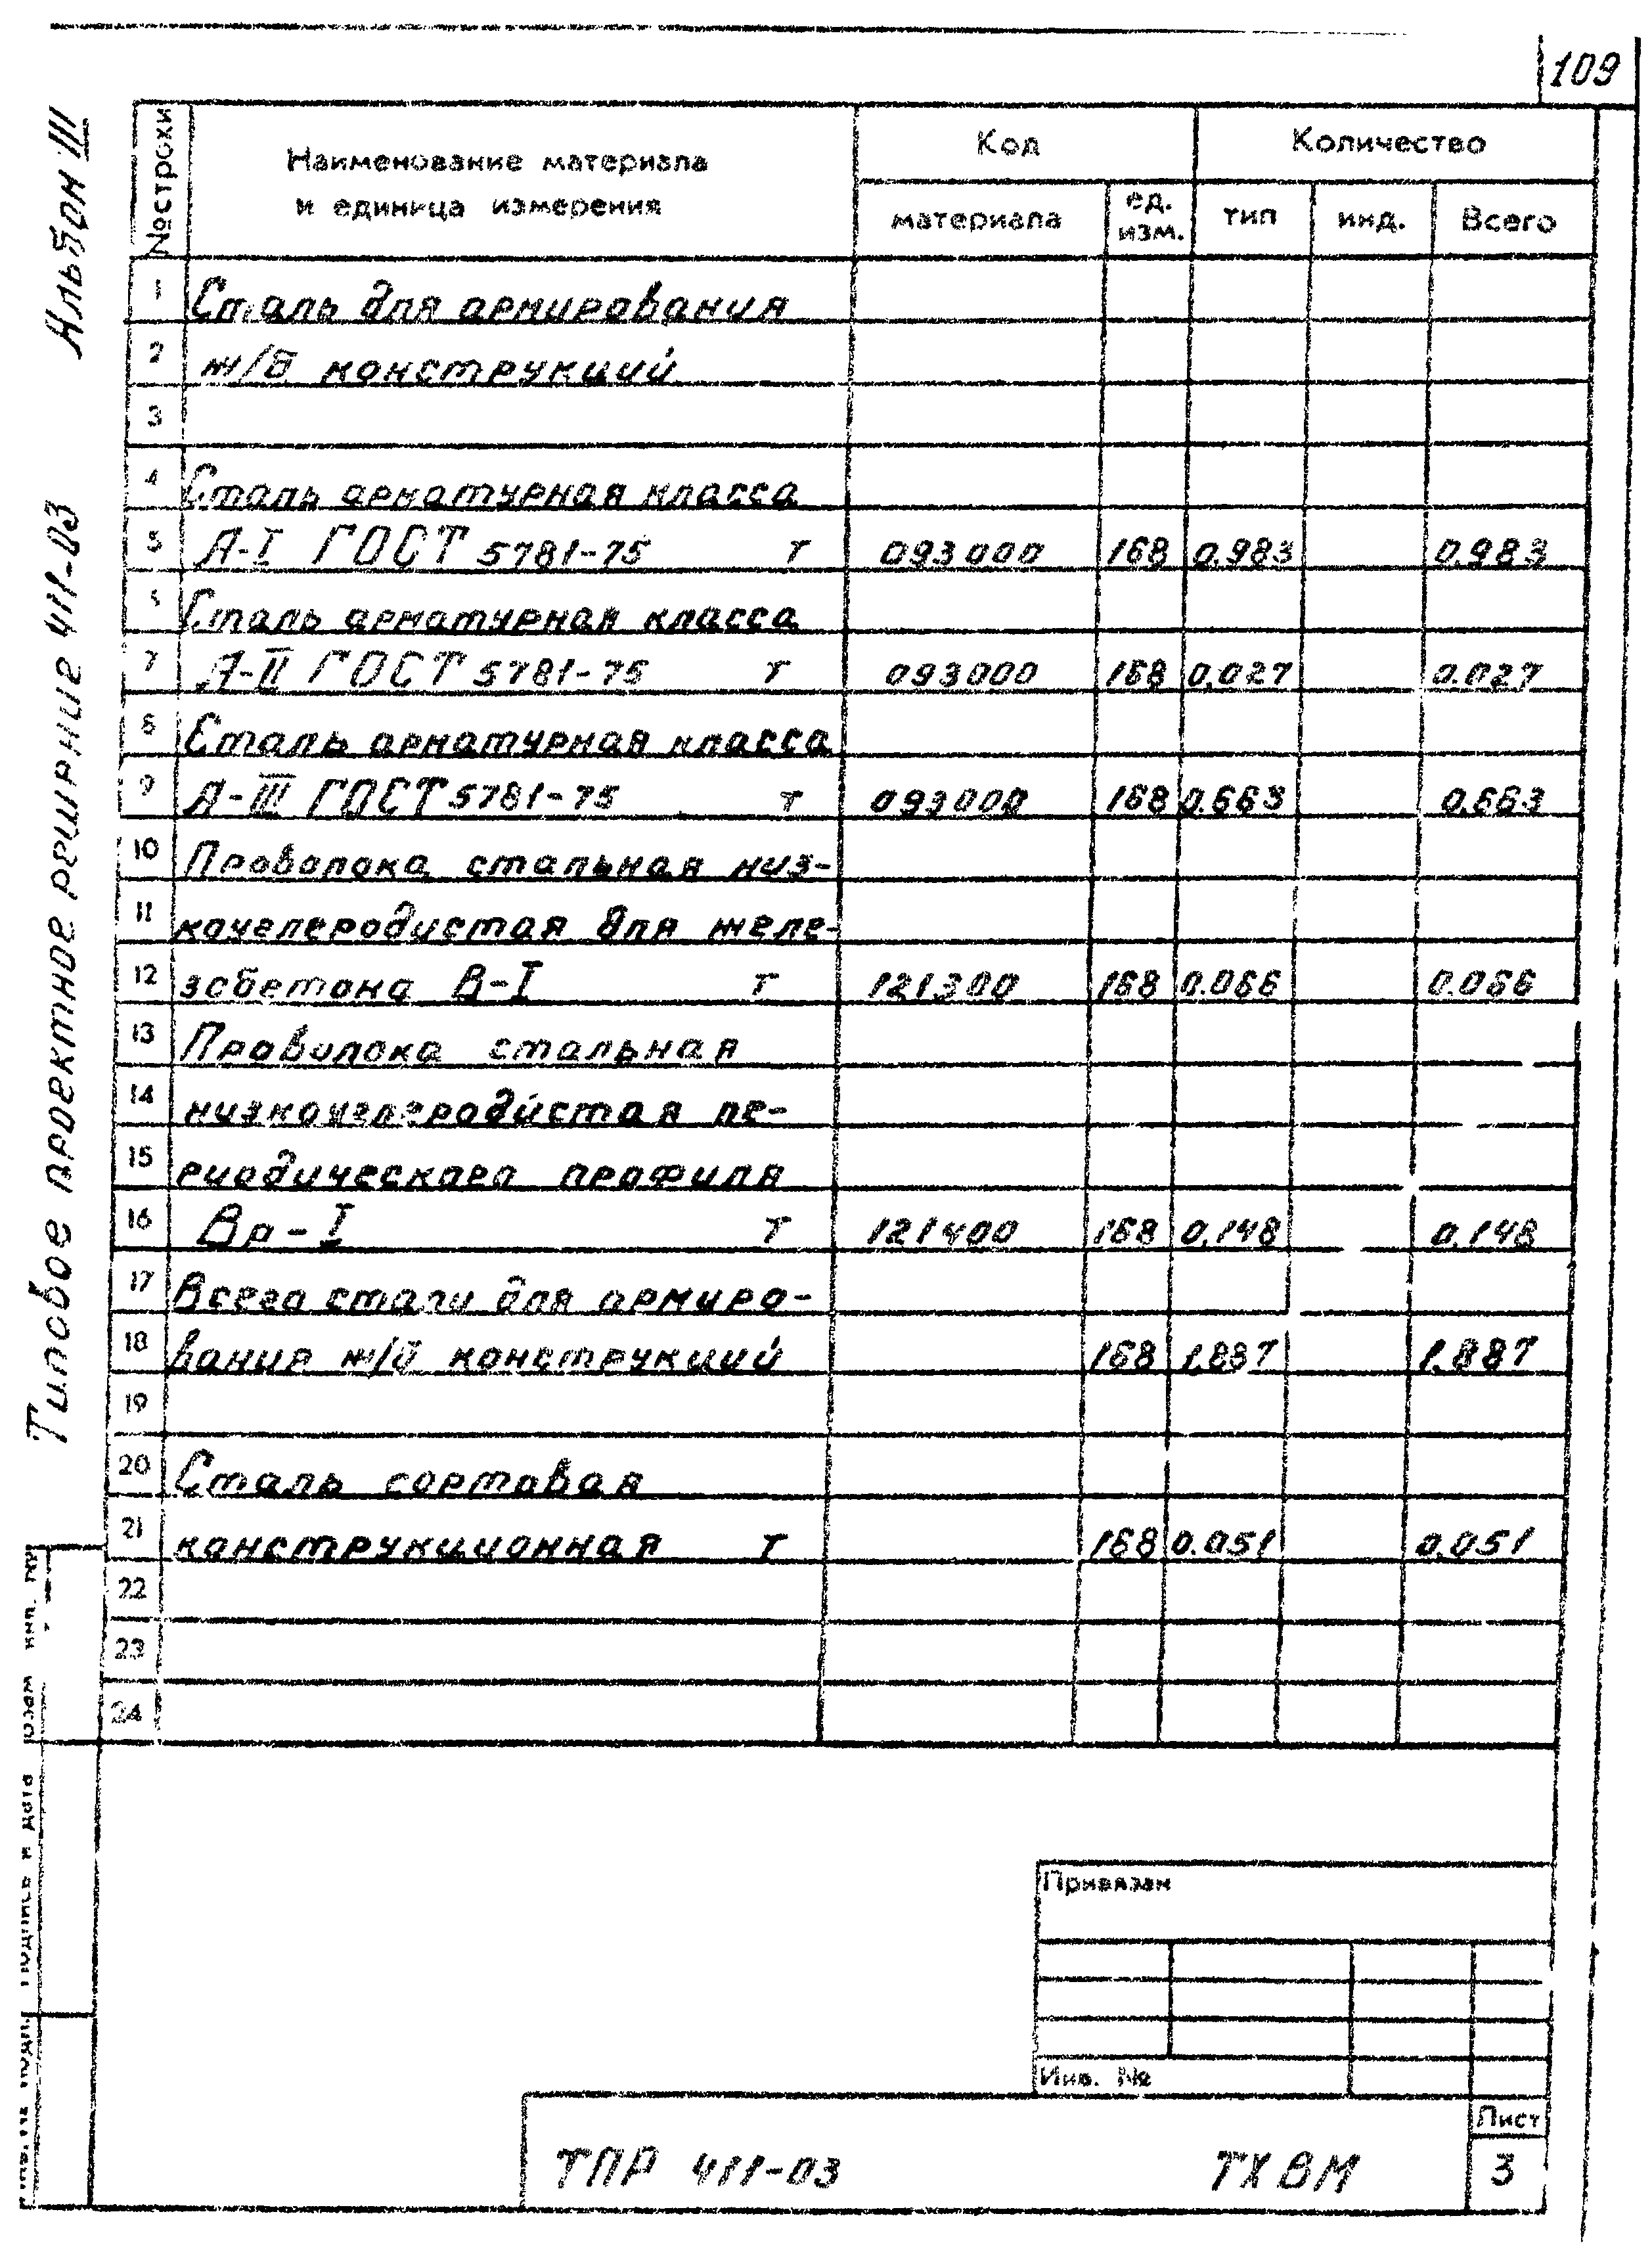 109
Альбом III
Типовое проектное решение 411-03
№ строки
Наименование материала
и единица измерения
Код
Количество
материала
ед.
изм.
тип
инд.
Всего
1 Сталь для армирования
2 ж/б конструкций
3
4 Сталь арматурная класса
5 А-I ГОСТ 5781-75 т 093000 168 0.983 0.983
6 Сталь арматурная класса
7 А-II ГОСТ 5781-75 т 093000 168 0.027 0.027
8 Сталь арматурная класса
9 А-III ГОСТ 5781-75 т 093000 168 0.663 0.663
10 Проволока стальная низ-
11 коуглеродистая для желе-
12 зобетона В-I т 121300 168 0.066 0.066
13 Проволока стальная
14 низкоуглеродистая пе-
15 риодического профиля
16 Вр-I т 121400 168 0.148 0.148
17 Всего стали для армиро-
18 вания ж/б конструкций 168 1.887 1.887
19
20 Сталь сортовая
21 конструкционная т 168 0.051 0.051
22
23
24
Взам инв.
Подпись и дата
подл.
Привязан
Инв. №
ТПР 411-03 ТХ ВМ
Лист
3